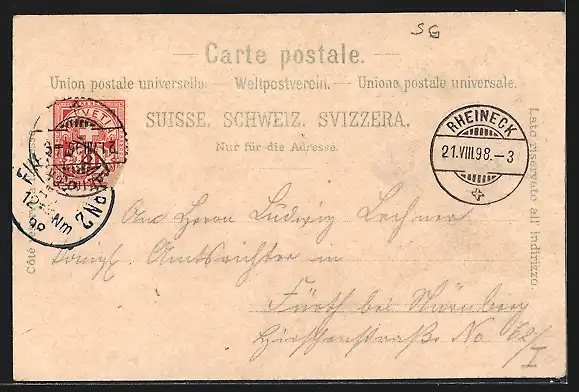 SG
Carte postale.
Union postale universelle. — Weltpostverein. — Unione postale universale.
SUISSE. SCHWEIZ. SVIZZERA.
Nur für die Adresse.
RHEINECK
21.VIII.98.–3
HELVETIA
12 Nm
98
2
Côté
Lato riservato all' indirizzo.
An Herrn Ludwig Lechner
Königl. Amtsrichter in
Fürth bei Nürnberg
Hirschenstraße No.
I